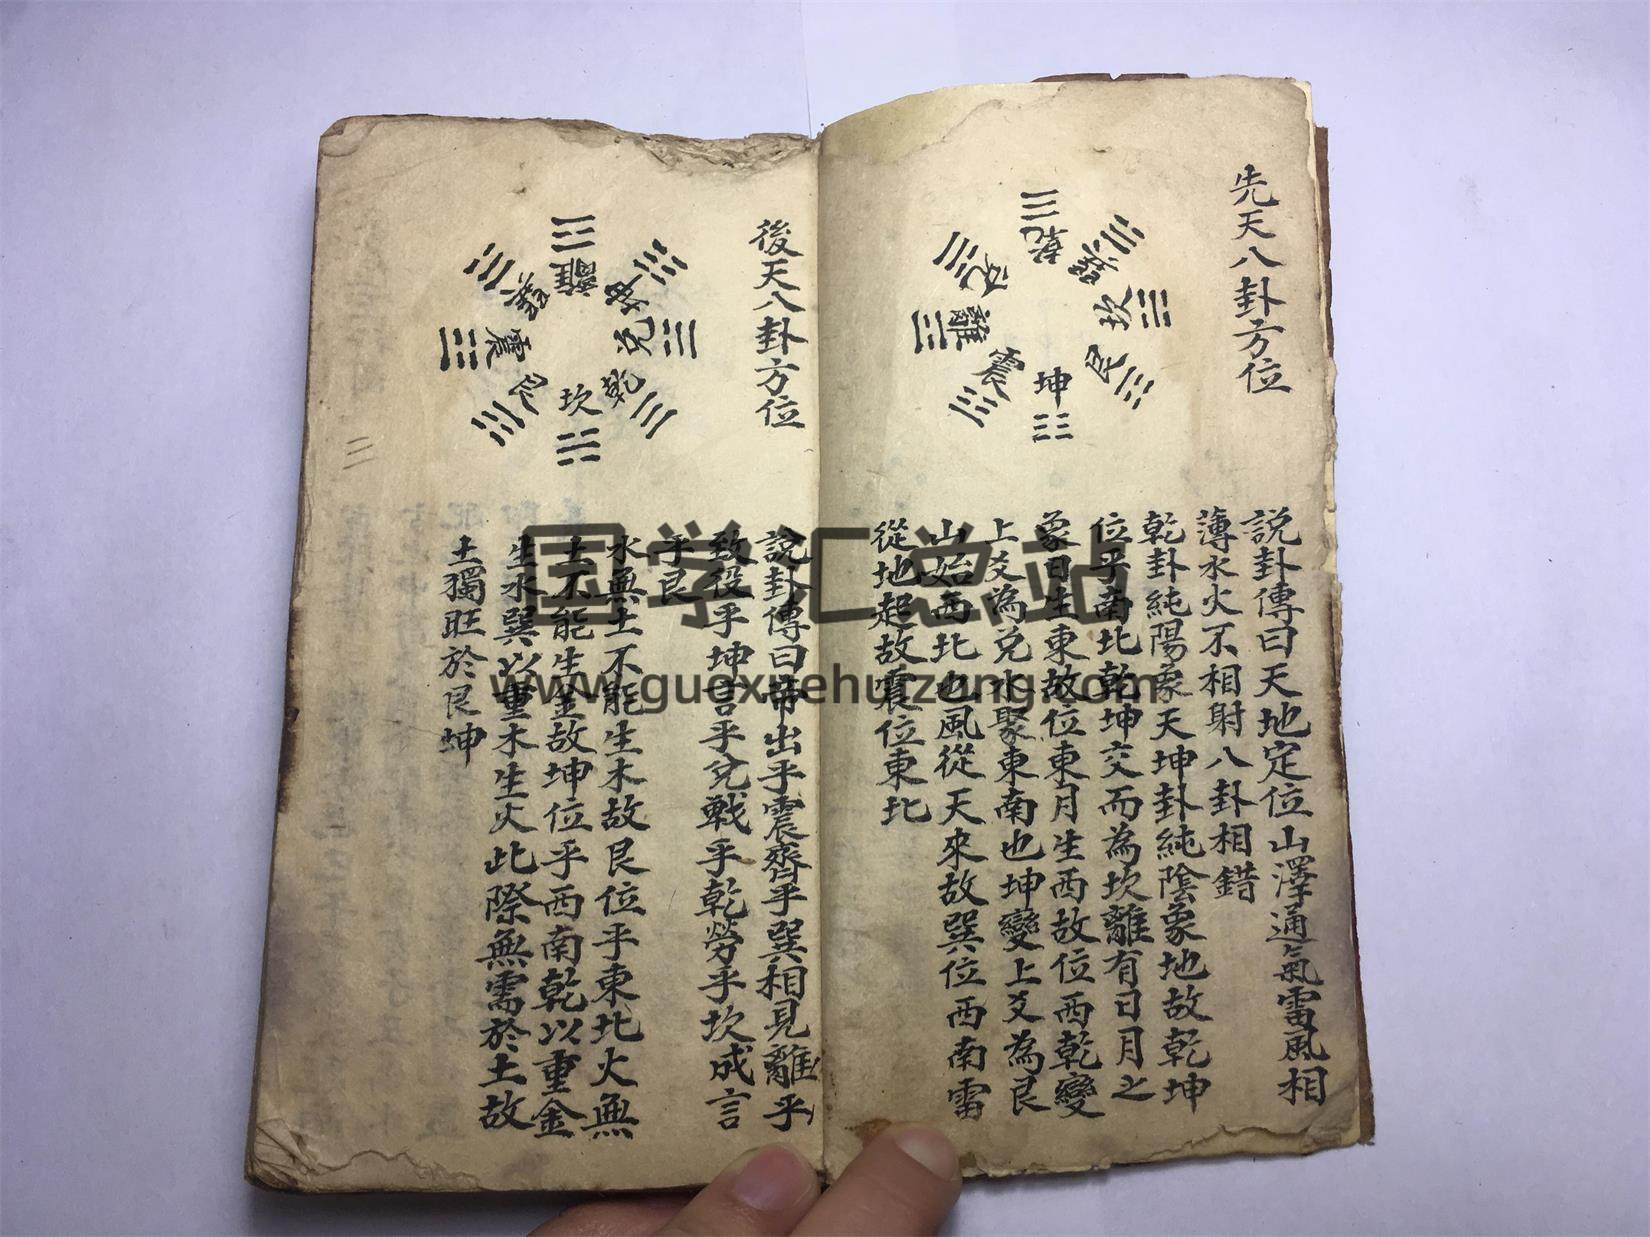 先天八卦方位
乾
兌
巽
離
坎
震
艮
坤
說卦傳曰天地定位山澤通氣雷風相
薄水火不相射八卦相錯
乾卦純陽象天坤卦純陰象地故乾坤
位乎南北乾坤交而為坎離有日月之
象日生東故位東月生西故位西乾變
上爻為兌水聚東南也坤變上爻為艮
山始西北也風從天來故巽位西南雷
從地起故震位東北
後天八卦方位
離
巽
坤
震
兌
艮
乾
坎
說卦傳曰帝出乎震齊乎巽相見離乎
致役乎坤言乎兌戰乎乾勞乎坎成言
乎艮
水無土不能生木故艮位乎東北火無
土不能生金故坤位乎西南乾以重金
生水巽以重木生火此際無需於土故
土獨旺於艮坤
二
国学汇总站
www.guoxuehuizong.com